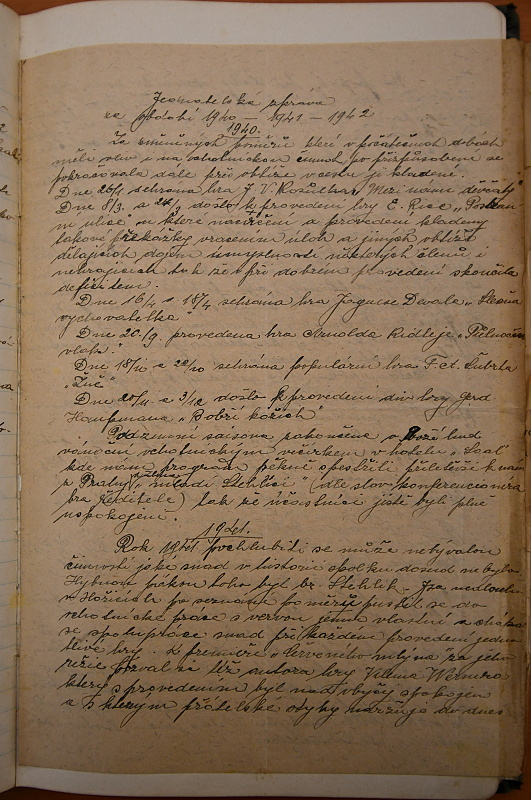 Jednatelská zpráva
za období 1940 – 1941 – 1942
1940.
Za změněných poměrů které v počátečních dobách
měli vliv i na ochotnickou činnost po přizpůsobení se
pokračovala dále přes obtíže v cestu jí kladené.
Dne 26/1 sehrána hra J. V. Rosůlka „Mezi námi děvčaty
Dne 8/3. a došlo k provedení hry E. Rice „Poslán
v ulici" v které nacvičení a provedení kladeny
takové překážky vracením úloh a jiných obtíží
dělajících dojem úmyslnosti některých členů i
nehrajících tak že i při dobrém provedení skončila
deficitem.
Dne 16/4 a 18/4 sehrána hra Jacquese Devala „Slečna
vychovatelka"
Dne 20./9. provedena hra Arnolda Ridleje „Přelud
vlak."
Dne 18/10 a 20/10 sehrána populární hra F. X. Šubrta
„Žně"
Dne a 3/12 došlo k provedení div hry gerd.
Haupmana „Bobří kožich"
Podzimní saisona zakončena o Boží hod
vánoční ochotnickým večírkem v hotelu „Saal"
kde nám program pěkně opestřili přátelé k nám
z Prahy i mladí Stehlíci" (dle slov konferenciéra
bra Ředitele) tak že účastníci jistě byli plně
uspokojeni.
1941.
Rok 1941 pochlubiti se může nebývalou
činností jaké snad v historii spolku dosud nebylo
Hybnou pákou toho byl br. Stehlík.
v Hořicích po seznání poměrů pustil se do
ochotnické práce s vervou jemu vlastní a
se spolupráce snad při každém provedení jedno
tlivé hry. K premiéře „Červeného mlýna" za jeho
režie pozval si též autora hry Viléma Wernera
který s provedením byl nad obyčej spokojen
a s kterým přátelské styky udržuje do dnes